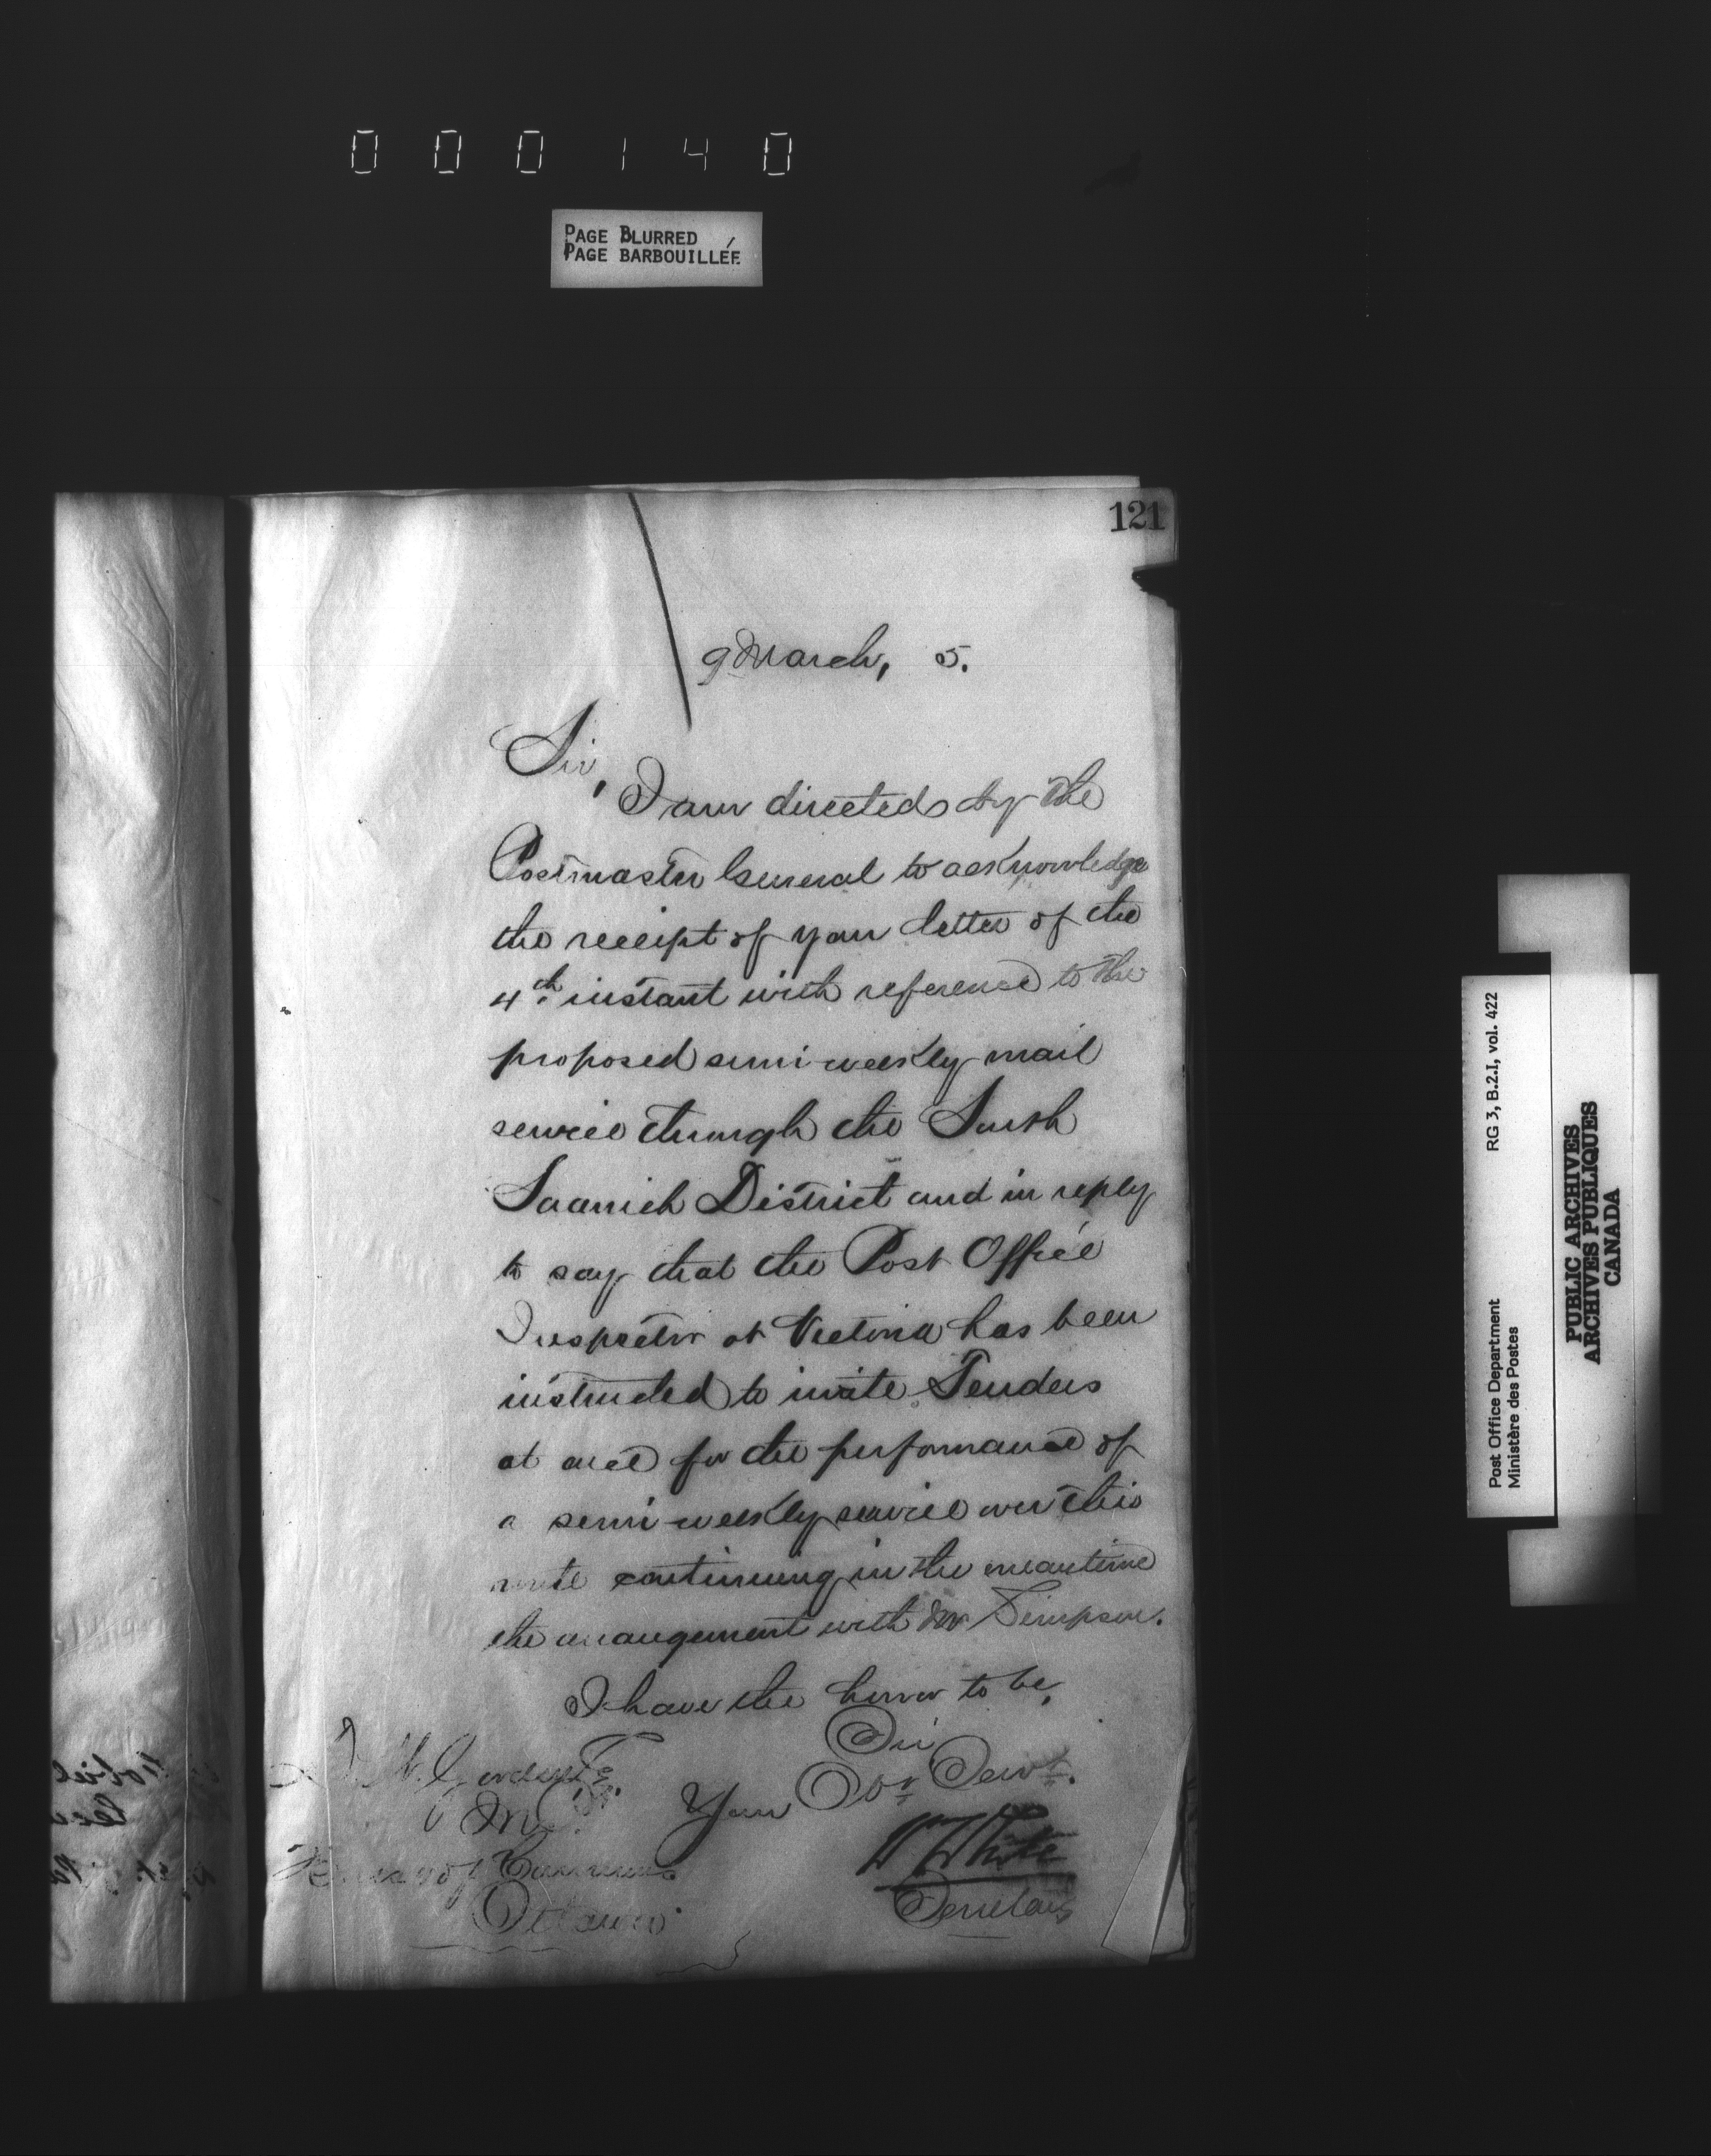 000140
PAGE BLURRED
PAGE BARBOUILLÉE
121
9 March, 5.
Sir,
I am directed by the
Postmaster General to acknowledge
the receipt of your letter of the
4th instant with reference to the
proposed semi-weekly mail
service through the South
Saanich District and in reply
to say that the Post Office
Inspector at Victoria has been
instructed to invite Tenders
at once for the performance of
a semi-weekly service over this
route continuing in the meantime
the arrangement with Mr Simpson.
I have the honor to be,
Sir,
Your Obt Servt.
W White
Secretary
House of Commons
Ottawa.
RG 3, B.2.I, vol. 422
Post Office Department
Ministère des Postes
PUBLIC ARCHIVES
ARCHIVES PUBLIQUES
CANADA